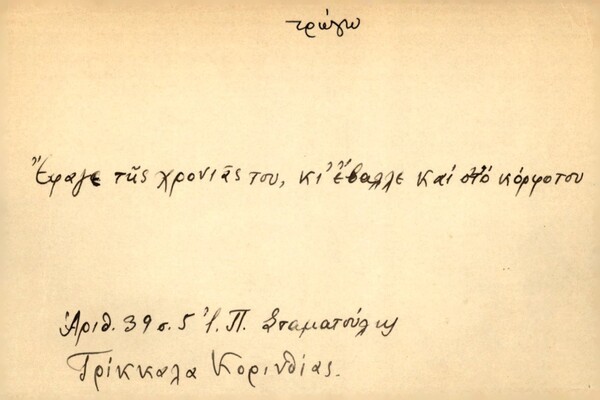 τρώγω
Ἔφαγε τῆς χρονιᾶς του, κι' ἔβαλλε καί στό κόρφο του
Ἀριθ. 39 σ. 5 Ἰ. Π. Σταματούλης
Τρίκκαλα Κορινθίας.